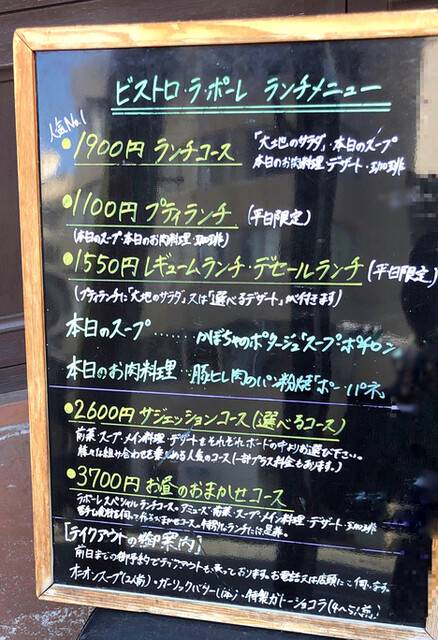 ビストロ・ラ・ポーレ ランチメニュー
人気No.1
・1900円 ランチコース
「大地のサラダ」・本日のスープ
本日のお肉料理・デザート・珈琲
・1100円 プティランチ (平日限定)
(本日のスープ・本日のお肉料理・珈琲)
・1550円 レギュームランチ・デセールランチ (平日限定)
(プティランチに「大地のサラダ」又は「選べるデザート」が付きます)
本日のスープ……かぼちゃのポタージュ「スープポチロン」
本日のお肉料理…豚ヒレ肉のパン粉焼き「ポー・パネ」
・2600円 サジェッションコース (選べるコース)
前菜・スープ・メイン料理・デザートをそれぞれボードの中よりお選び下さい。
様々な組み合わせを楽しめる人気のコース(一部プラス料金もあります)
・3700円 お昼のおまかせコース
ラポーレスペシャルランチコース。アミューズ・前菜・スープ・メイン料理・デザート・珈琲
おまかせコース。特別なランチには是非。
[テイクアウトの御案内]
前日までの御予約でテイクアウトも承っております。お電話又は店頭にて伺います。
オニオンスープ(2人前)・ガーリックバター・特製ガトーショコラ(4〜5人前)